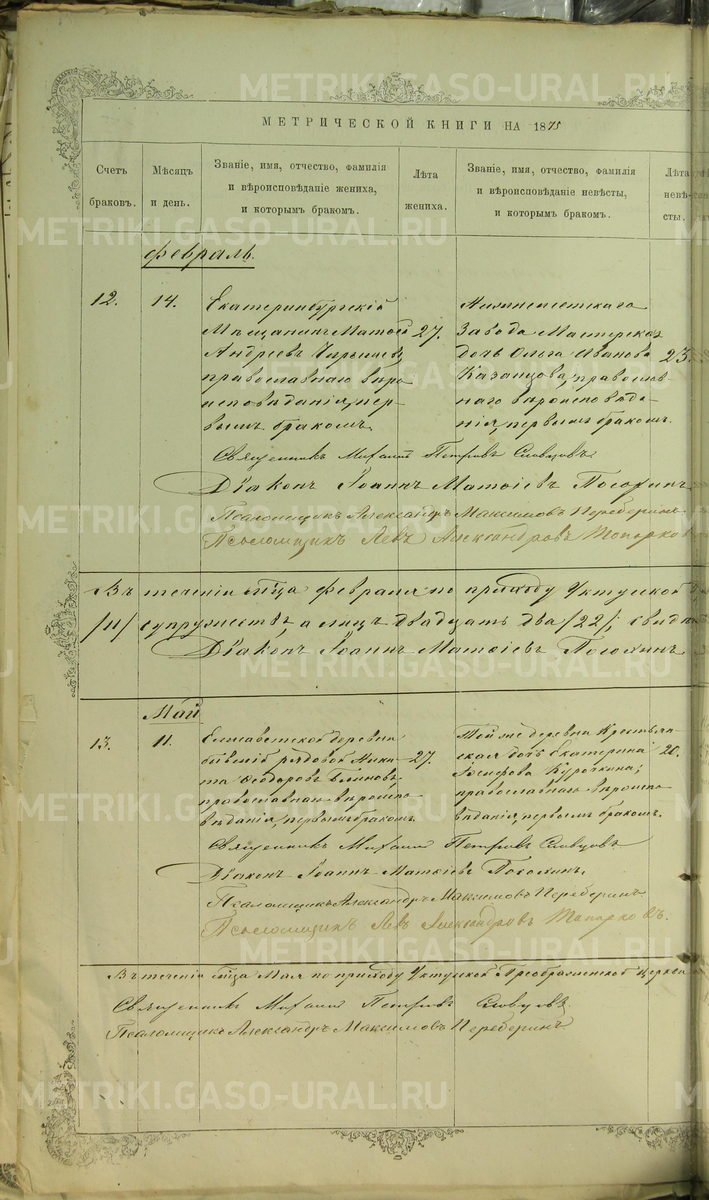 METRIKI.GASO-URAL.RU
МЕТРИЧЕСКОЙ КНИГИ НА 1875
Счетъ браковъ.
Мѣсяцъ и день.
Званіе, имя, отчество, фамилія
и вѣроисповѣданіе жениха,
и которымъ бракомъ.
Лѣта жениха.
Званіе, имя, отчество, фамилія
и вѣроисповѣданіе невѣсты,
и которымъ бракомъ.
Лѣта невѣ-
сты.
Февраль.
12. 14.
Екатеринбургскій
Мѣщанинъ Матѳей 27.
Андреевъ
православнаго вѣро
исповѣданія, пер-
вымъ бракомъ.
Нижнеисетскаго
Завода Мастерская
дочь Ольга Иванова 23.
Казанцова, православ
наго вѣроисповѣда-
нія, первымъ бракомъ.
Священникъ Михаилъ Петровъ Словцовъ
Діаконъ Іоаннъ Матѳіевъ
Псаломщикъ Александръ Максимовъ Переберинъ
Псаломщикъ Левъ Александровъ Топорков
Въ теченіи м҃ца Февраля по приходу Уктусской
/11/ супружествъ, а лицъ двадцать два /22/;
Діаконъ Іоаннъ Матѳіевъ
Май
13. 11.
Елисаветской деревни
бывшій рядовой Ники- 27.
та Ѳеодоровъ Блиновъ,
православнаго вѣроиспо-
вѣданія, первымъ бракомъ.
Той же деревни Крестьян-
ская дочь Екатерина 20.
Курочкина;
православнаго вѣроиспо-
вѣданія, первымъ бракомъ.
Священникъ Михаилъ Петровъ Словцовъ
Діаконъ Іоаннъ Матѳіевъ
Псаломщикъ Александръ Максимовъ Переберинъ
Псаломщикъ Левъ Александровъ Топорковъ.
Въ теченіи м҃ца Мая по приходу Уктусской Преображенской церкви
Священникъ Михаилъ Петровъ
Псаломщикъ Александръ Максимовъ Переберинъ